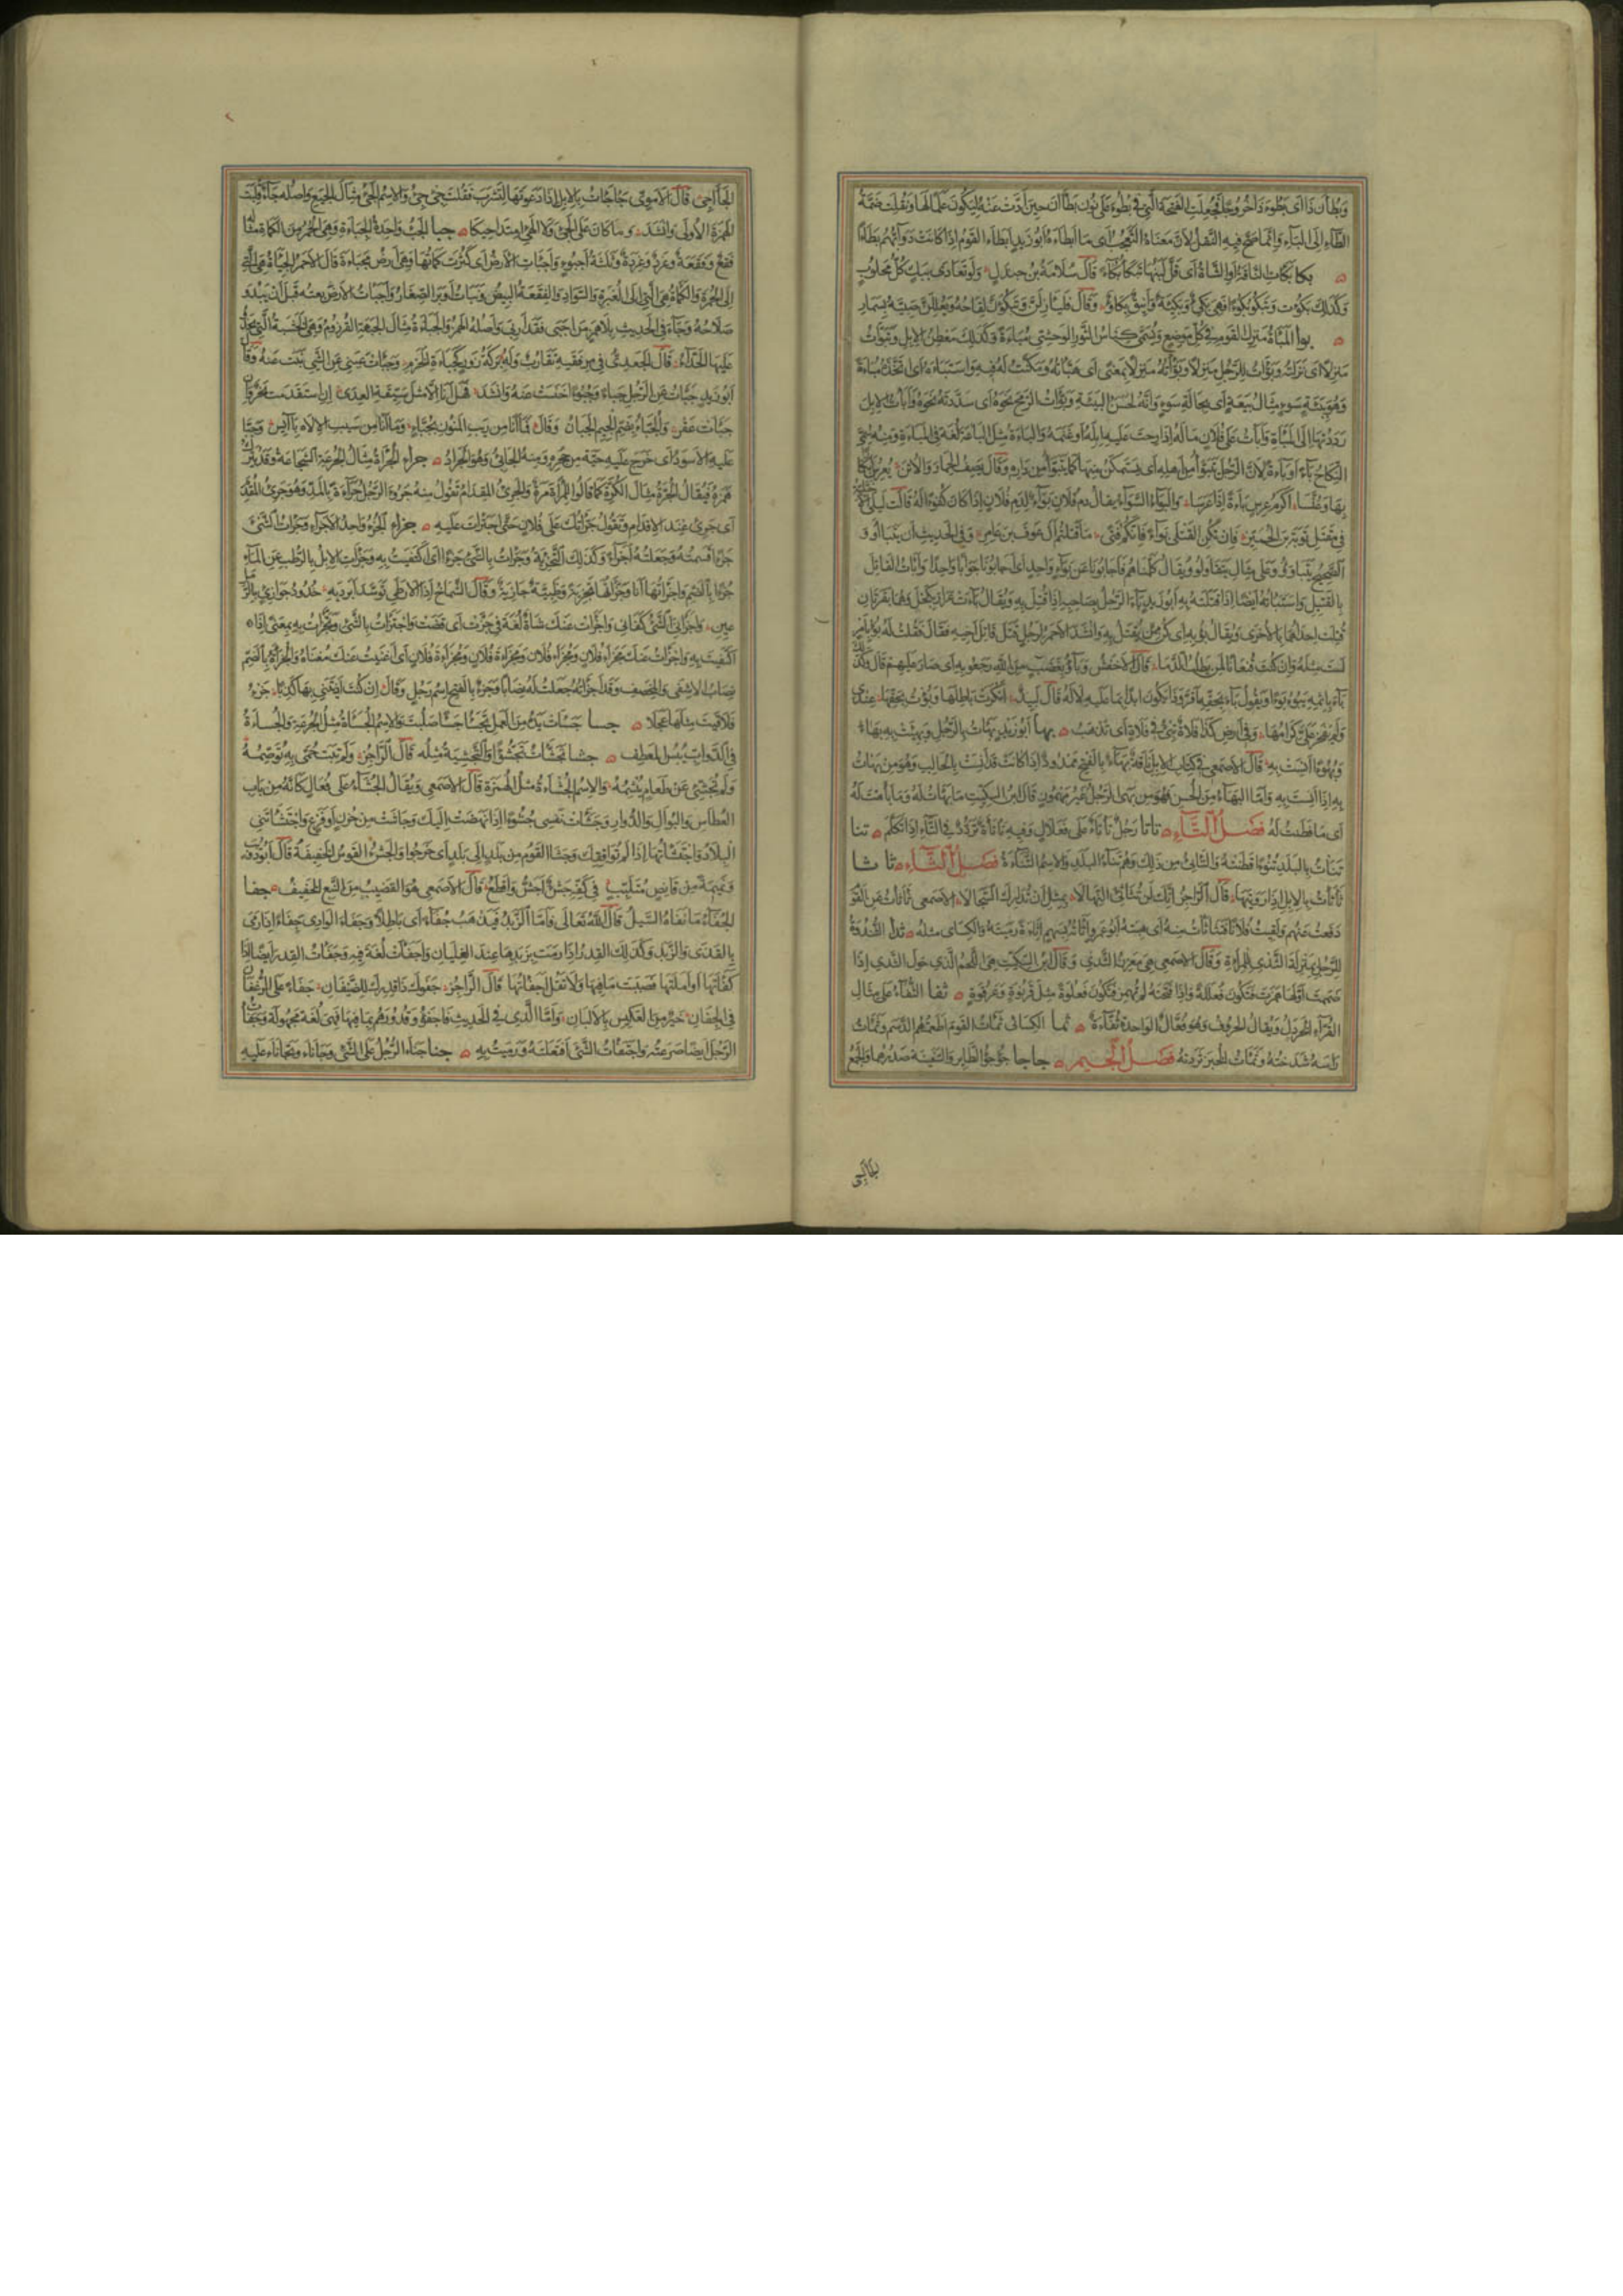 وبطآن ذا اى بطوء ذا خروجا فجعلت الفتحة التى فى بطوء على نون بطآن حين ادت عنه ليكون علما لها ونقلت ضمة
الطاء الى الباء وانما صح فيه النقل لان معناه التعجب اى ما ابطاءه ابو زيد ابطاء القوم اذا كانت دوابهم بطاء
بكا بكات الناقة او الشاة اى قل لبنها تبكأ بكاء قال سلامة بن جندل ولو تعادى ببكء كل محلوب
وكذلك بكؤت وتبكؤ بكوءا فهى بكىء وبكيئة واينق بكاء وقال فليازلن وتبكؤن لقاحه ويعللن صبيه بسمار
بوا المباءة منزل القوم فى كل موضع ويسمى كناس الثور الوحشى مباءة وكذلك معطن الابل وتبوأت
منزلا اى نزلته وبوأت للرجل منزلا وبوأته منزلا بمعنى اى هيأته ومكنت له فيه واستباءه اى اتخذه مباءة
وهو ببيئة سوء مثال بيعة اى بحالة سوء وانه لحسن البيئة وبوأت الرمح نحوه اى سددته نحوه وابأت الابل
رددتها الى المباءة وابأت على فلان ماله اذا ارحت عليه ابله او غنمه والباءة مثل الباعة لغة فى المباءة ومنه سمى
النكاح باء وباءة لان الرجل يتبوأ من اهله اى يستمكن منها كما يتبوأ من داره وقال يصف الحمار والاتن يعرس ابكارا
بها وعنسا اكرم عرس باءة اذ اعرسا والبواء السواء يقال دم فلان بواء لدم فلان اذا كان كفوءا له قالت ليلى الاخيلية
فى مقتل توبة بن الحمير فان تكن القتلى بواء فانكم فتى ما قتلتم ال عوف بن عامر وفى الحديث ان يتباأوا و
الصحيح يتباوؤا على مثال يتقاولوا ويقال كلمناهم فاجابونا عن بواء واحد اى اجابونا جوابا واحدا وابأت القاتل
بالقتيل واستبأته ايضا اذا قتلته به ابو زيد باء الرجل بصاحبه اذا قتل به ويقال باءت عرار بكحل وهما بقرتان
قتلت احداهما بالاخرى ويقال بؤ به اى كن ممن يقتل به وانشد الاحمر لرجل قتل قاتل اخيه فقال فقلت له بؤ بامرئ
لست مثله وان كنت قنعانا لمن يطلب الدما قال الاخفش وباؤا بغضب من الله رجعوا به اى صار عليهم قال وكذلك
باء باثمه يبوء بوءا وتقول باء بحقه اى اقر وذا يكون ابدا بما عليه لا له قال لبيد انكرت باطلها وبؤت بحقها عندى
ولم يفخر على كرامها وفى ارض كذا فلاة تبئ فى فلاة اى تذهب بها ابو زيد بهأت بالرجل وبهئت به بهاء
وبهوءا انست به قال الاصمعى فى كتاب الابل ناقة بهاء بالفتح ممدود اذا كانت قد انست بالحالب وهو من بهأت
به اذا انست به واما البهاء من الحسن فهو من بهى الرجل غير مهموز قال ابن السكيت ما بهأت له وما بأهت له
اى ما فطنت له فصل التاء تاتا رجل تأتاء على فعلال وفيه تأتأة تردد فى التاء اذا تكلم تنا
تنأت بالبلد تنوءا قطنته والتانئ من ذلك وهم تناء البلد والاسم التناءة فصل الثاء ثاثا
ثأثأت بالابل اذا رويتها قال الراجز انك لن تثأثئ النهالا بمثل ان تدارك السجالا الاصمعى ثأثأت عن القوم
دفعت عنهم ولقيت فلانا فتثأثأت منه اى هبته ابو عمرو اثأته بسهم اثاءة رميته والكسائى مثله ثدا الثندوة
للرجل بمنزلة الثدى للمراة وقال الاصمعى هى مغرز الثدى وقال ابن السكيت هى اللحم الذى حول الثدى اذا
ضممت اولها همزت فتكون فعللة واذا فتحته لم تهمز فتكون فعلوة مثل قرنوة وعرقوة ثفا الثفاء على مثال
القراء الخردل ويقال الحرف وهو فعال الواحدة ثفاءة ثما الكسائى ثمأت القوم اطعمتهم الدسم وثمأت
راسه شدخته وثمأت الخبز ثردته فصل الجيم جاجا جؤجؤ الطاير والسفينة صدرهما والجمع
الجآجئ قال الاموى جأجأت بالابل اذا دعوتها لتشرب فقلت جئ جئ والاسم الجئ مثال الجيع واصله جئء قلبت
الهمزة الاولى وانشد وما كان على الجئ ولا الهئ امتداحيكا جبا الجبء واحد الجباءة وهى الحمر من الكماة مثال
فقع وفقعة وغرد وغردة وثلثة اجبؤ واجبأت الارض اى كثرت كماتها وهى ارض مجبأة قال الاحمر الجباءة هى التى
الى الحمرة والكماة هى التى الى الغبرة والسواد والفقعة البيض وبنات اوبر الصغار واجبأت الزرع بعته قبل ان يبدو
صلاحه وجاء فى الحديث بلا همز من اجبى فقد اربى واصله الهمز والجبأة مثال الجبهة القرزوم وهى الخشبة التى يحذو
عليها الحذاء قال الجعدى فى مرفقيه تقارب وله بركة زور كجبأة الخزم وجبأت عينى عن الشئ نبت عنه وقال
ابو زيد جبأت عن الرجل جبأ وجبوءا خنست عنه وانشد فهل انا الا مثل سيقة العدى ان استقدمت نحر وان
جبأت عقر والجباء بضم الجيم الجبان وقال فما انا من ريب المنون بجباء وما انا من سيب الاله بآيس وجبا
عليه الاسود اى خرج عليه حية من جحره ومنه الجابئ وهو الجراد جرا الجرأة مثال الجرعة الشجاعة وقد يترك
همزه فيقال الجرة مثال الكرة كما قالوا للمراة مرة والجرئ المقدام تقول منه جرؤ الرجل جراءة بالمد وهو جرئ المقدم
اى جرئ عند الاقدام وتقول جرأتك على فلان حتى اجترأت عليه جزا الجزء واحد الاجزاء وجزأت الشئ
جزءا قسمته وجعلته اجزاء وكذلك التجزئة وجزأت بالشئ جزءا اى اكتفيت به وجزأت الابل بالرطب عن الماء
جزءا بالضم واجزأتها انا وجزأتها تجزئة وظبية جازئة وقال الشماخ اذا الارطى توسد ابرديه خدود جوازئ بالرمل
عين واجزأنى الشئ كفانى واجزأت عنك شاة لغة فى جزت اى قضت واجتزأت بالشئ وتجزأت به بمعنى اذا
اكتفيت به واجزأت عنك مجزأ فلان ومجزأ فلان ومجزأة فلان ومجزأة فلان اى اغنيت عنك مغناه والجزأة بالضم
نصاب الاشفى والمخصف وقد اجزأته جعلت له نصابا وجزء بالفتح اسم رجل وقال ان كنت ازننتنى بها كذبا جزء
فلاقيت مثلها عجلا جسا جسأت يده من العمل تجسأ جسأ صلبت والاسم الجسأة مثل الجرعة والجسأة
فى الدواب يبس المعطف جشا تجشأت تجشؤا والتجشئة مثله قال الراجز ولم تبت حمى به توصمه
ولم تجشئ عن طعام يبشمه والاسم الجشأة مثل الهمزة قال الاصمعى ويقال الجشاء على فعال كانه من باب
العطاس والبوال والدوار وجشأت نفسى جشوءا اذا نهضت اليك وجاشت من حزن او فزع واجتشأتنى
البلاد واجتشأتها اذا لم توافقك وجشا القوم من بلد الى بلد اى خرجوا والجشء القوس الخفيفة قال ابو ذؤيب
ونميمة من قانص متلبب فى كفه جشء اجش واقطع قال الاصمعى هو القضيب من النبع الخفيف جفا
الجفاء ما نفاه السيل قال الله تعالى فاما الزبد فيذهب جفاء اى باطلا وجفا الوادى جفاء اذا رمى
بالقذى والزبد وكذلك القدر اذا رمت بزبدها عند الغليان واجفأت لغة فيه وجفأت القدر ايضا اذا
كفأتها او املتها فصببت ما فيها ولا تقل اجفأتها قال الراجز جفؤك ذا قدرك للضيفان جفأ على الرغفان
فى الجفان خير من العكيس بالالبان واما الذى فى الحديث فاجفؤا قدورهم بما فيها فهى لغة مجهولة وجفأت
الرجل ايضا صرعته واجتفأت الشئ اقتلعته ورميت به جنا جنا الرجل على الشئ وجانا وتجانا عليه